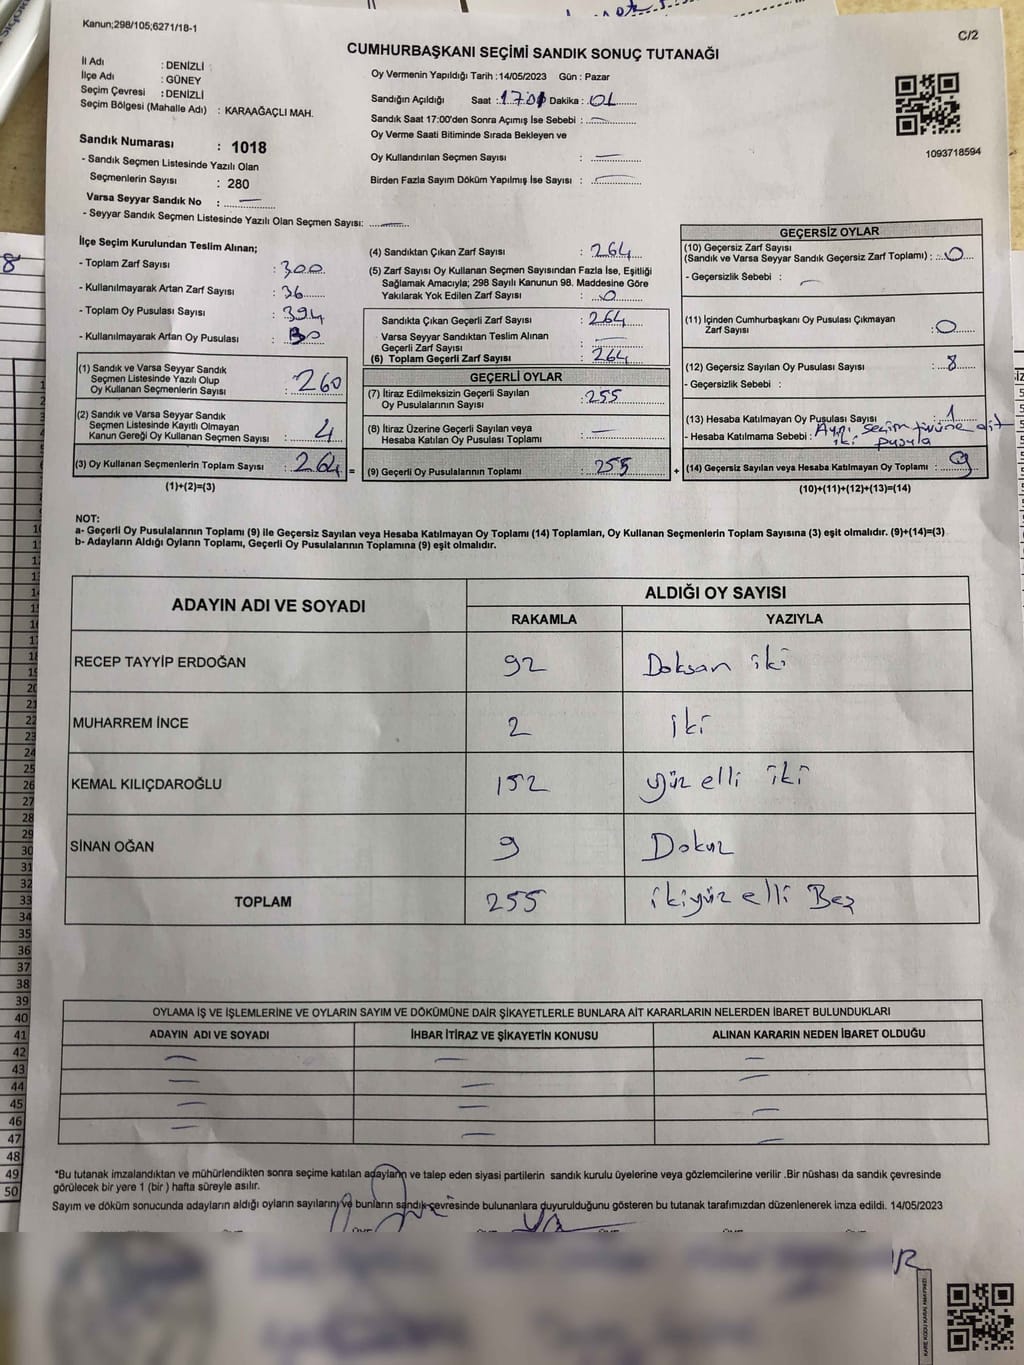 Kanun;298/105;6271/18-1
C/2
CUMHURBAŞKANI SEÇİMİ SANDIK SONUÇ TUTANAĞI
İl Adı : DENİZLİ
İlçe Adı : GÜNEY
Seçim Çevresi : DENİZLİ
Seçim Bölgesi (Mahalle Adı) : KARAAĞAÇLI MAH.
Sandık Numarası : 1018
- Sandık Seçmen Listesinde Yazılı Olan
Seçmenlerin Sayısı : 280
Varsa Seyyar Sandık No :
- Seyyar Sandık Seçmen Listesinde Yazılı Olan Seçmen Sayısı:
Oy Vermenin Yapıldığı Tarih :14/05/2023 Gün : Pazar
Sandığın Açıldığı Saat : Dakika :
Sandık Saat 17:00'den Sonra Açımış İse Sebebi :
Oy Verme Saati Bitiminde Sırada Bekleyen ve
Oy Kullandırılan Seçmen Sayısı :
Birden Fazla Sayım Döküm Yapılmış İse Sayısı :
1093718594
İlçe Seçim Kurulundan Teslim Alınan;
- Toplam Zarf Sayısı : 300
- Kullanılmayarak Artan Zarf Sayısı : 36
- Toplam Oy Pusulası Sayısı : 394
- Kullanılmayarak Artan Oy Pusulası :
(1) Sandık ve Varsa Seyyar Sandık
Seçmen Listesinde Yazılı Olup
Oy Kullanan Seçmenlerin Sayısı : 260
(2) Sandık ve Varsa Seyyar Sandık
Seçmen Listesinde Kayıtlı Olmayan
Kanun Gereği Oy Kullanan Seçmen Sayısı : 4
(3) Oy Kullanan Seçmenlerin Toplam Sayısı : 264 =
(1)+(2)=(3)
(4) Sandıktan Çıkan Zarf Sayısı : 264
(5) Zarf Sayısı Oy Kullanan Seçmen Sayısından Fazla İse, Eşitliği
Sağlamak Amacıyla; 298 Sayılı Kanunun 98. Maddesine Göre
Yakılarak Yok Edilen Zarf Sayısı : 0
Sandıkta Çıkan Geçerli Zarf Sayısı : 264
Varsa Seyyar Sandıktan Teslim Alınan
Geçerli Zarf Sayısı :
(6) Toplam Geçerli Zarf Sayısı : 264
GEÇERLİ OYLAR
(7) İtiraz Edilmeksizin Geçerli Sayılan
Oy Pusulalarının Sayısı : 255
(8) İtiraz Üzerine Geçerli Sayılan veya
Hesaba Katılan Oy Pusulası Toplamı :
(9) Geçerli Oy Pusulalarının Toplamı : 255 +
GEÇERSİZ OYLAR
(10) Geçersiz Zarf Sayısı
(Sandık ve Varsa Seyyar Sandık Geçersiz Zarf Toplamı) : 0
- Geçersizlik Sebebi :
(11) İçinden Cumhurbaşkanı Oy Pusulası Çıkmayan
Zarf Sayısı : 0
(12) Geçersiz Sayılan Oy Pusulası Sayısı : 8
- Geçersizlik Sebebi :
(13) Hesaba Katılmayan Oy Pusulası Sayısı : 1
- Hesaba Katılmama Sebebi : Aynı seçim türüne ait
iki pusula
(14) Geçersiz Sayılan veya Hesaba Katılmayan Oy Toplamı : 9
(10)+(11)+(12)+(13)=(14)
NOT:
a- Geçerli Oy Pusulalarının Toplamı (9) ile Geçersiz Sayılan veya Hesaba Katılmayan Oy Toplamı (14) Toplamları, Oy Kullanan Seçmenlerin Toplam Sayısına (3) eşit olmalıdır. (9)+(14)=(3)
b- Adayların Aldığı Oyların Toplamı, Geçerli Oy Pusulalarının Toplamına (9) eşit olmalıdır.
ADAYIN ADI VE SOYADI ALDIĞI OY SAYISI
RAKAMLA YAZIYLA
RECEP TAYYİP ERDOĞAN 92 Doksan iki
MUHARREM İNCE 2 iki
KEMAL KILIÇDAROĞLU 152 yüz elli iki
SİNAN OĞAN 9 Dokuz
TOPLAM 255 ikiyüz elli Beş
OYLAMA İŞ VE İŞLEMLERİNE VE OYLARIN SAYIM VE DÖKÜMÜNE DAİR ŞİKAYETLERLE BUNLARA AİT KARARLARIN NELERDEN İBARET BULUNDUKLARI
ADAYIN ADI VE SOYADI İHBAR İTİRAZ VE ŞİKAYETİN KONUSU ALINAN KARARIN NEDEN İBARET OLDUĞU
*Bu tutanak imzalandıktan ve mühürlendikten sonra seçime katılan adayların ve talep eden siyasi partilerin sandık kurulu üyelerine veya gözlemcilerine verilir .Bir nüshası da sandık çevresinde
görülecek bir yere 1 (bir ) hafta süreyle asılır.
Sayım ve döküm sonucunda adayların aldığı oyların sayılarını ve bunların sandık çevresinde bulunanlara duyurulduğunu gösteren bu tutanak tarafımızdan düzenlenerek imza edildi. 14/05/2023